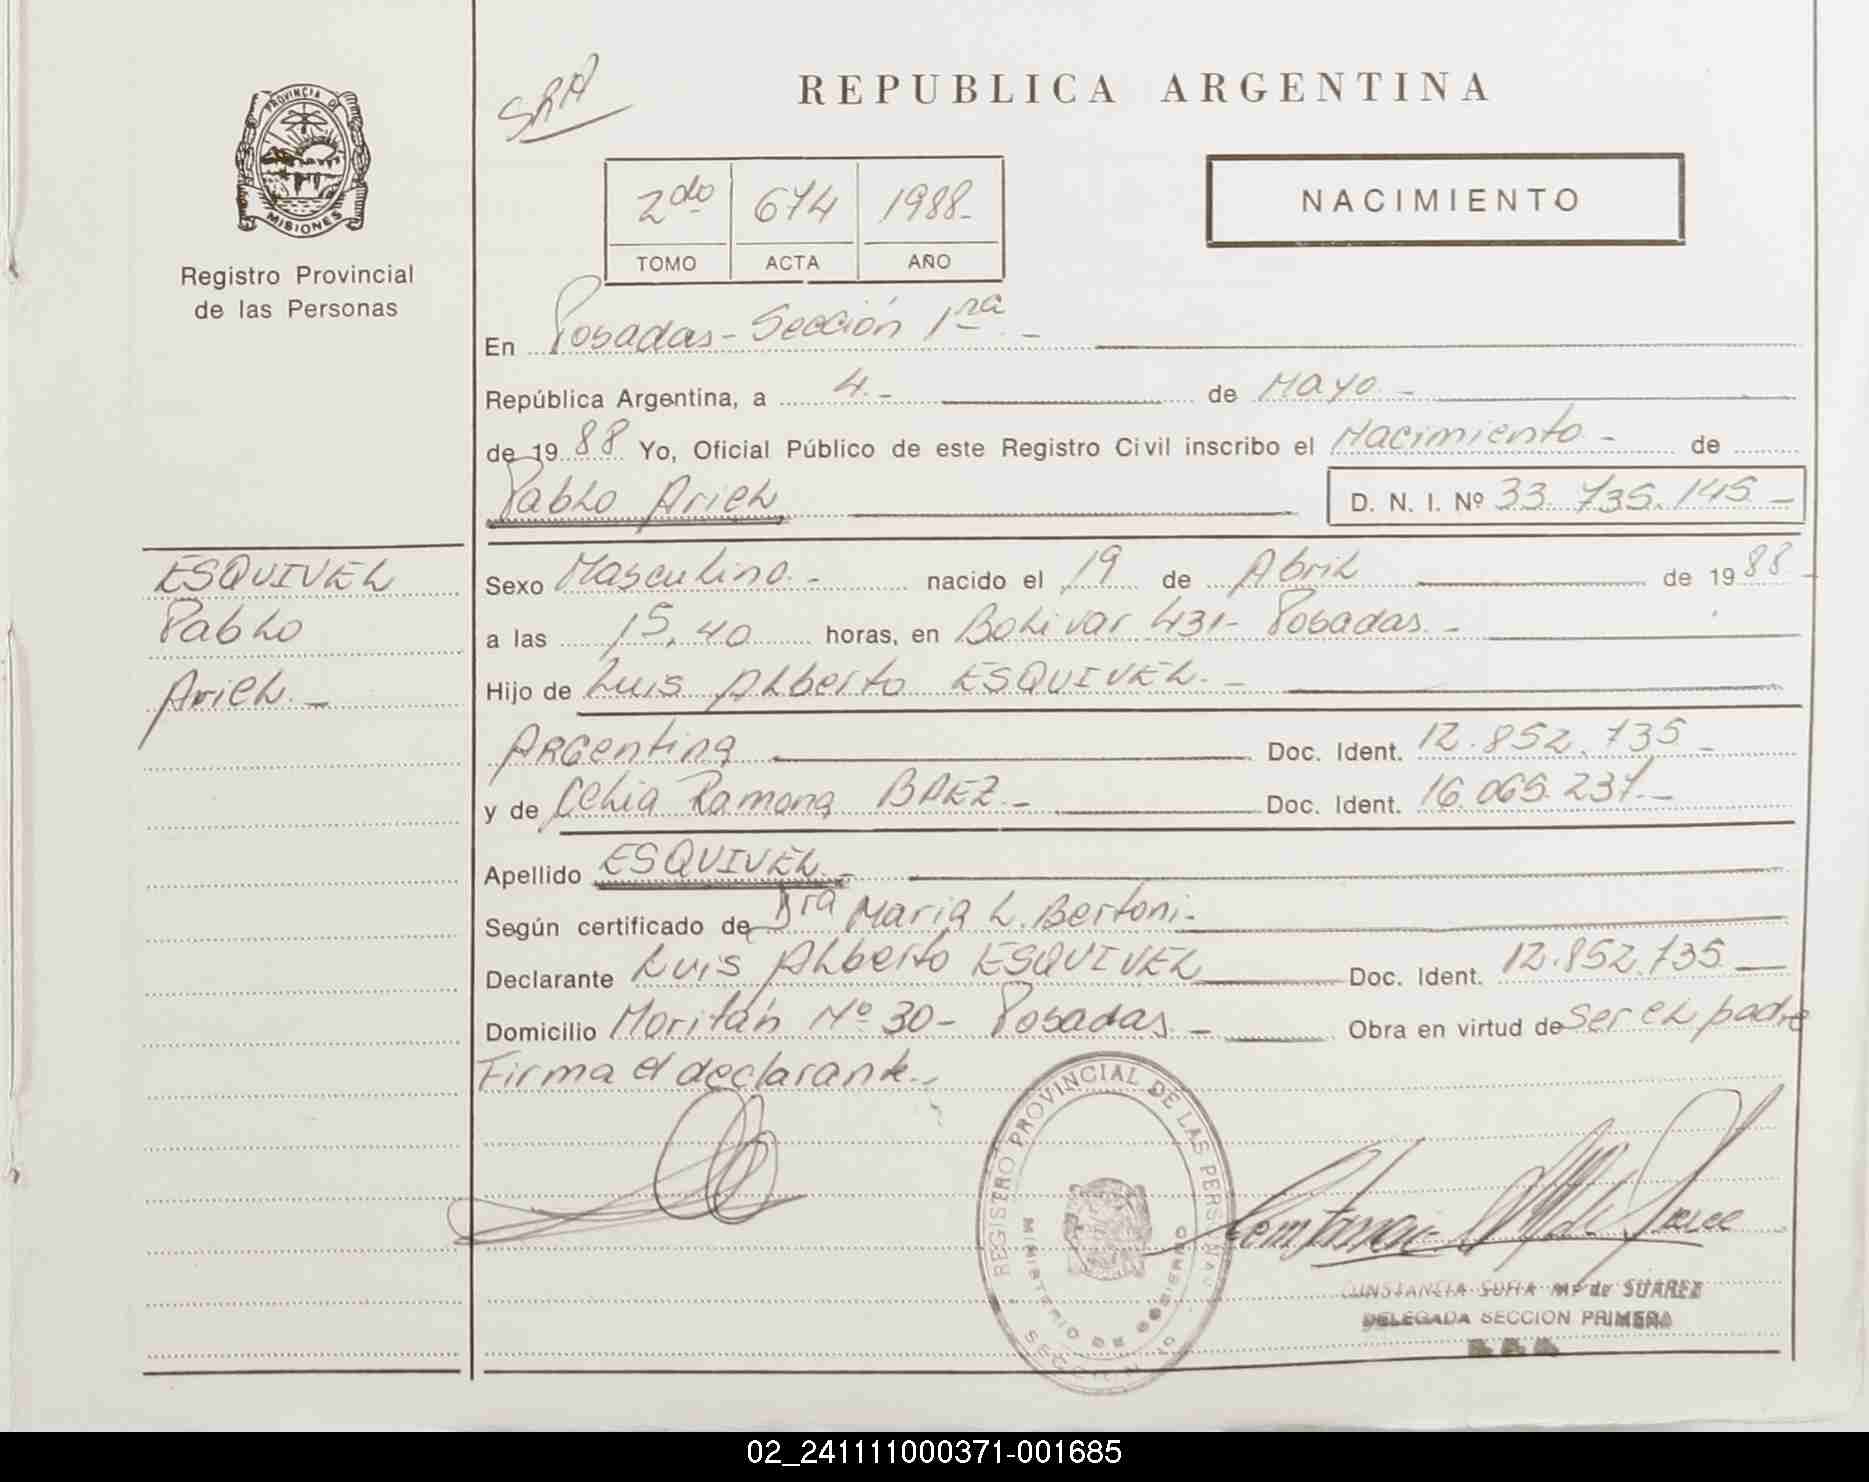 PROVINCIA DE
MISIONES
Registro Provincial
de las Personas
SRA
REPUBLICA ARGENTINA
2do 674 1988-
TOMO ACTA AÑO
NACIMIENTO
En Posadas - Sección 1ra -
República Argentina, a 4.- de Mayo -
de 1988 Yo, Oficial Público de este Registro Civil inscribo el Nacimiento - de
Pablo Ariel D. N. I. Nº 33.735.145 -
ESQUIVEL
Pablo
Ariel.-
Sexo Masculino.- nacido el 19 de Abril de 1988-
a las 15,40 horas, en Bolivar 431- Posadas.-
Hijo de Luis Alberto ESQUIVEL.-
Argentina Doc. Ident. 12.852.735 -
y de Celia Ramona BAEZ.- Doc. Ident. 16.065.237.-
Apellido ESQUIVEL.-
Según certificado de Dra Maria L. Bertoni.-
Declarante Luis Alberto ESQUIVEL Doc. Ident. 12.852.735
Domicilio Moritán Nº 30- Posadas.- Obra en virtud de ser el padre
Firma el declarante.-
REGISTRO PROVINCIAL DE LAS PERSONAS
MINISTERIO DE GOBIERNO
CONSTANCIA SOFIA Mº de SUAREZ
DELEGADA SECCION PRIMERA
02_241111000371-001685